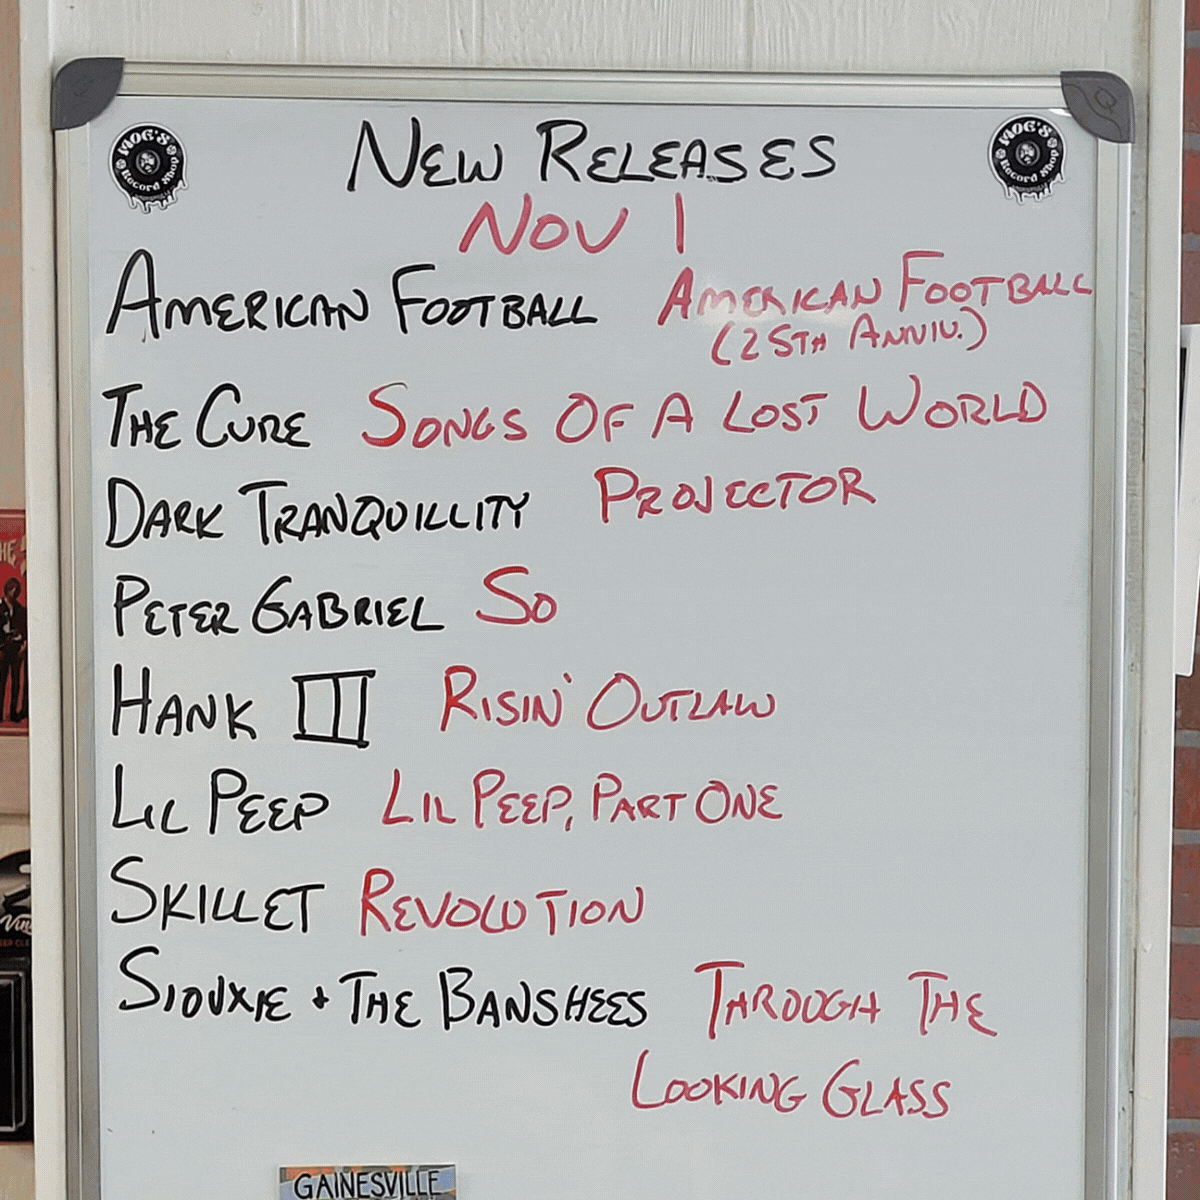 MOG'S
Record Shop
MOG'S
Record Shop
NEW RELEASES
NOV 1
AMERICAN FOOTBALL AMERICAN FOOTBALL
(25TH ANNIV.)
THE CURE SONGS OF A LOST WORLD
DARK TRANQUILLITY PROJECTOR
PETER GABRIEL SO
HANK III RISIN' OUTLAW
LIL PEEP LIL PEEP, PART ONE
SKILLET REVOLUTION
SIOUXIE + THE BANSHEES THROUGH THE
LOOKING GLASS
GAINESVILLE